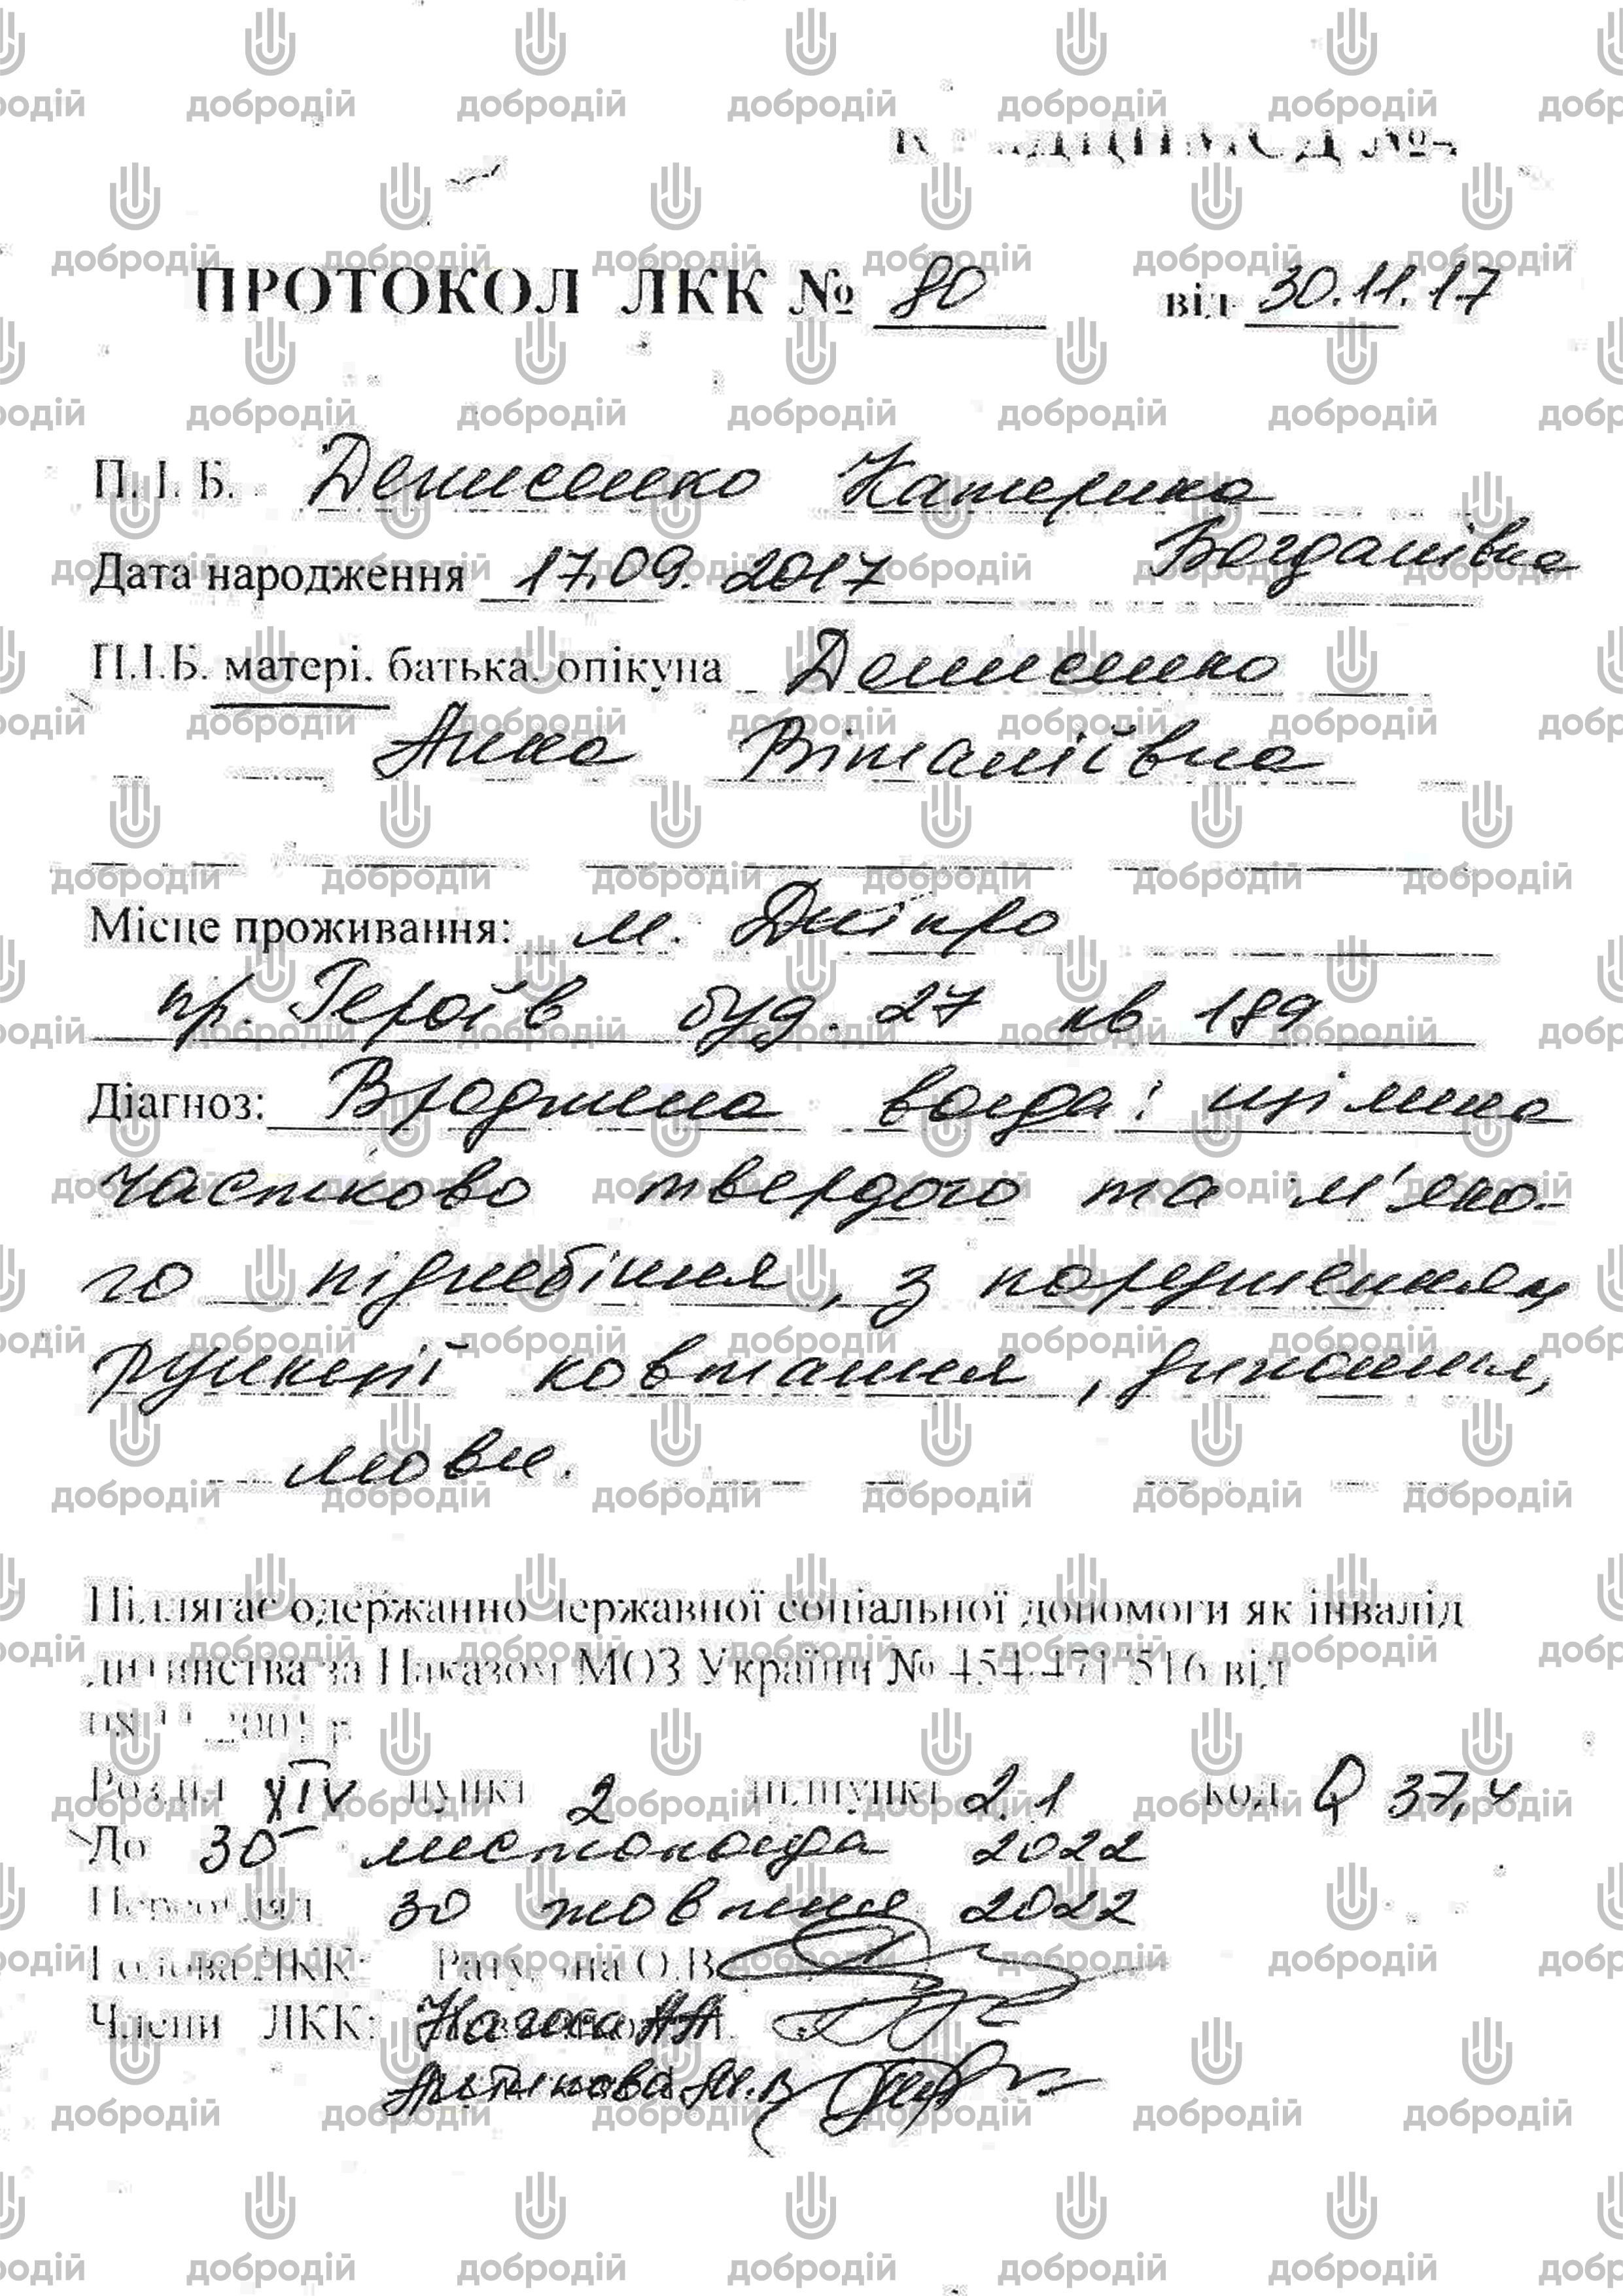 ПРОТОКОЛ ЛКК № 80 від 30.11.17
П. І. Б. Денисенко Катерина
Богданівна
Дата народження 17.09.2017
П.І.Б. матері, батька, опікуна Денисенко
Анна Віталіївна
Місце проживання: м. Дніпро
пр. Героїв буд. 27 кв 189
Діагноз: Вроджена вада: щілина
частково твердого та м'яко-
го піднебіння, з порушенням
функції ковтання, дихання,
мови.
Підлягає одержанню державної соціальної допомоги як інвалід
дитинства за Наказом МОЗ України № 454/471/516 від
08.11.2001 р.
Розділ XIV пункт 2 підпункт 2.1 код Q 37,4
До 30 листопада 2022
Переогляд 30 жовтня 2022
Голова ЛКК: О.В.
Члени ЛКК:
добродій